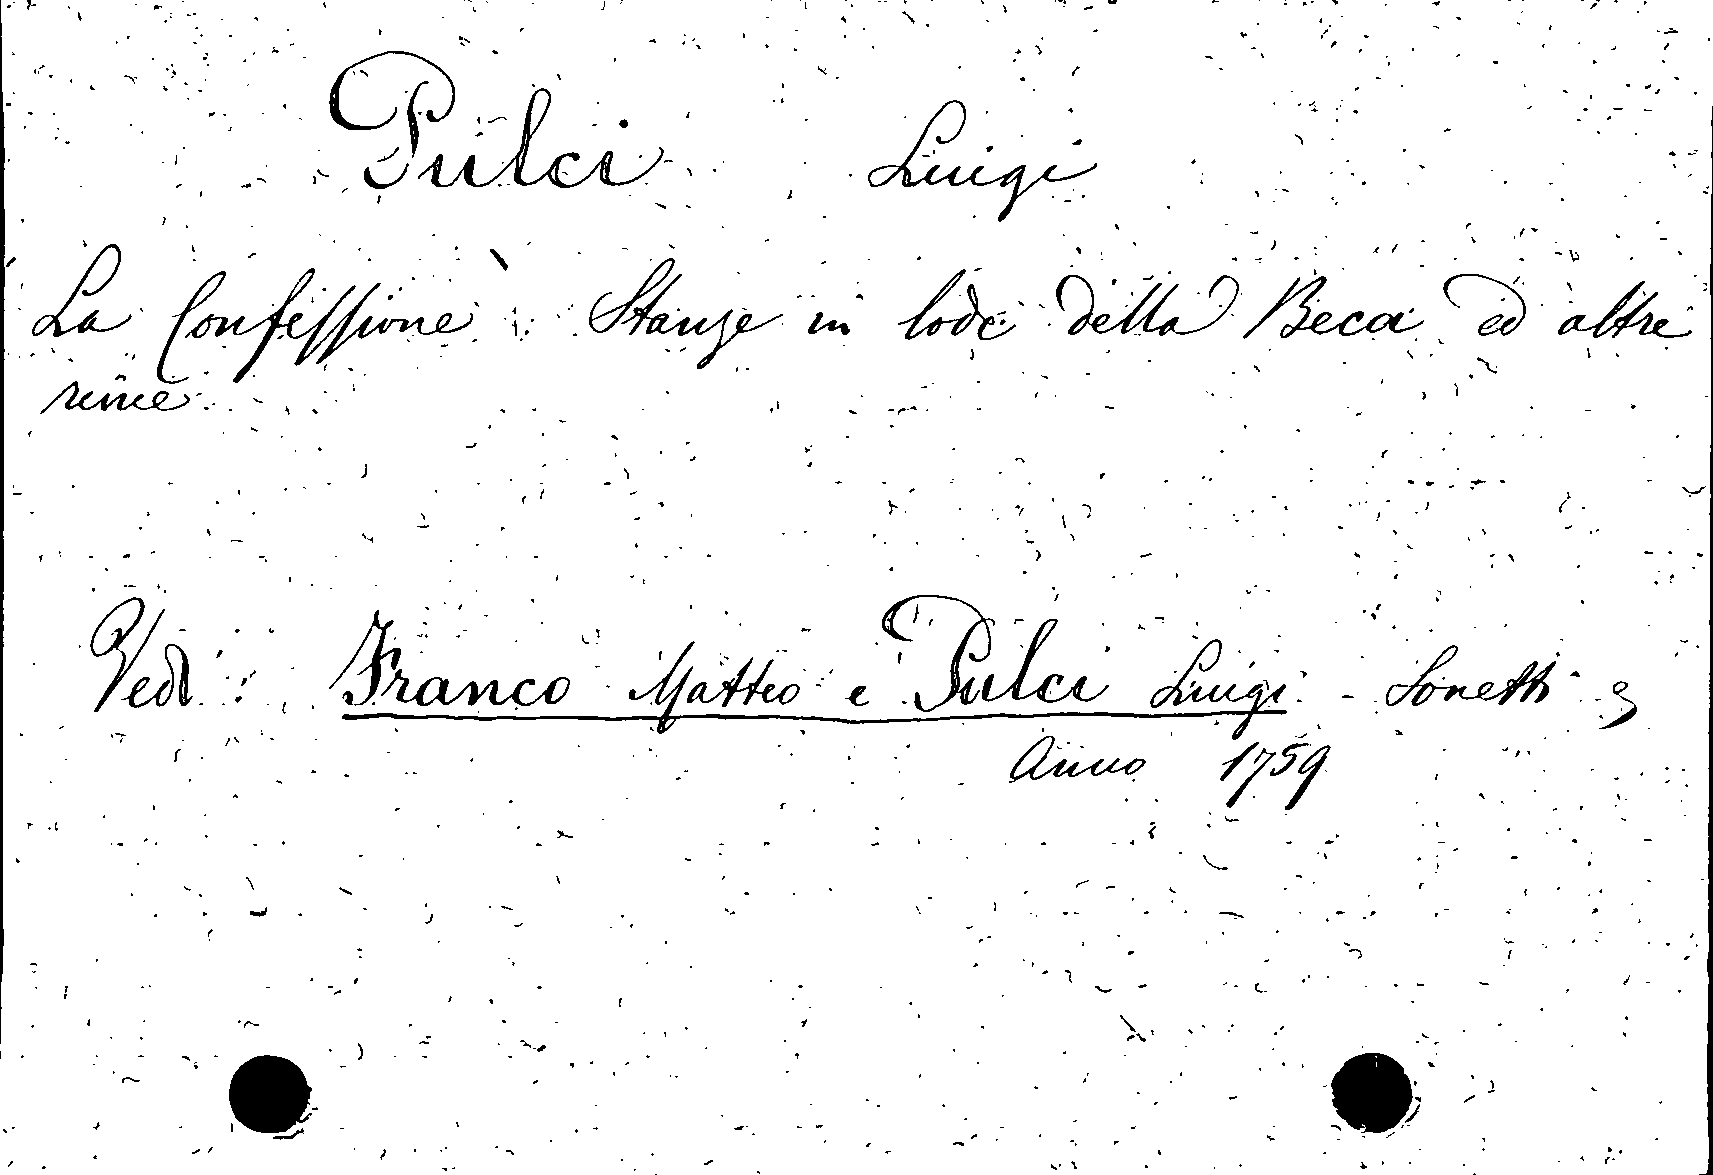 Pulci Luigi
La Confessione: Stanze in lode della Beca ed altre
rime
Vedi: Franco Matteo e Pulci Luigi - Sonetti
Anno 1759